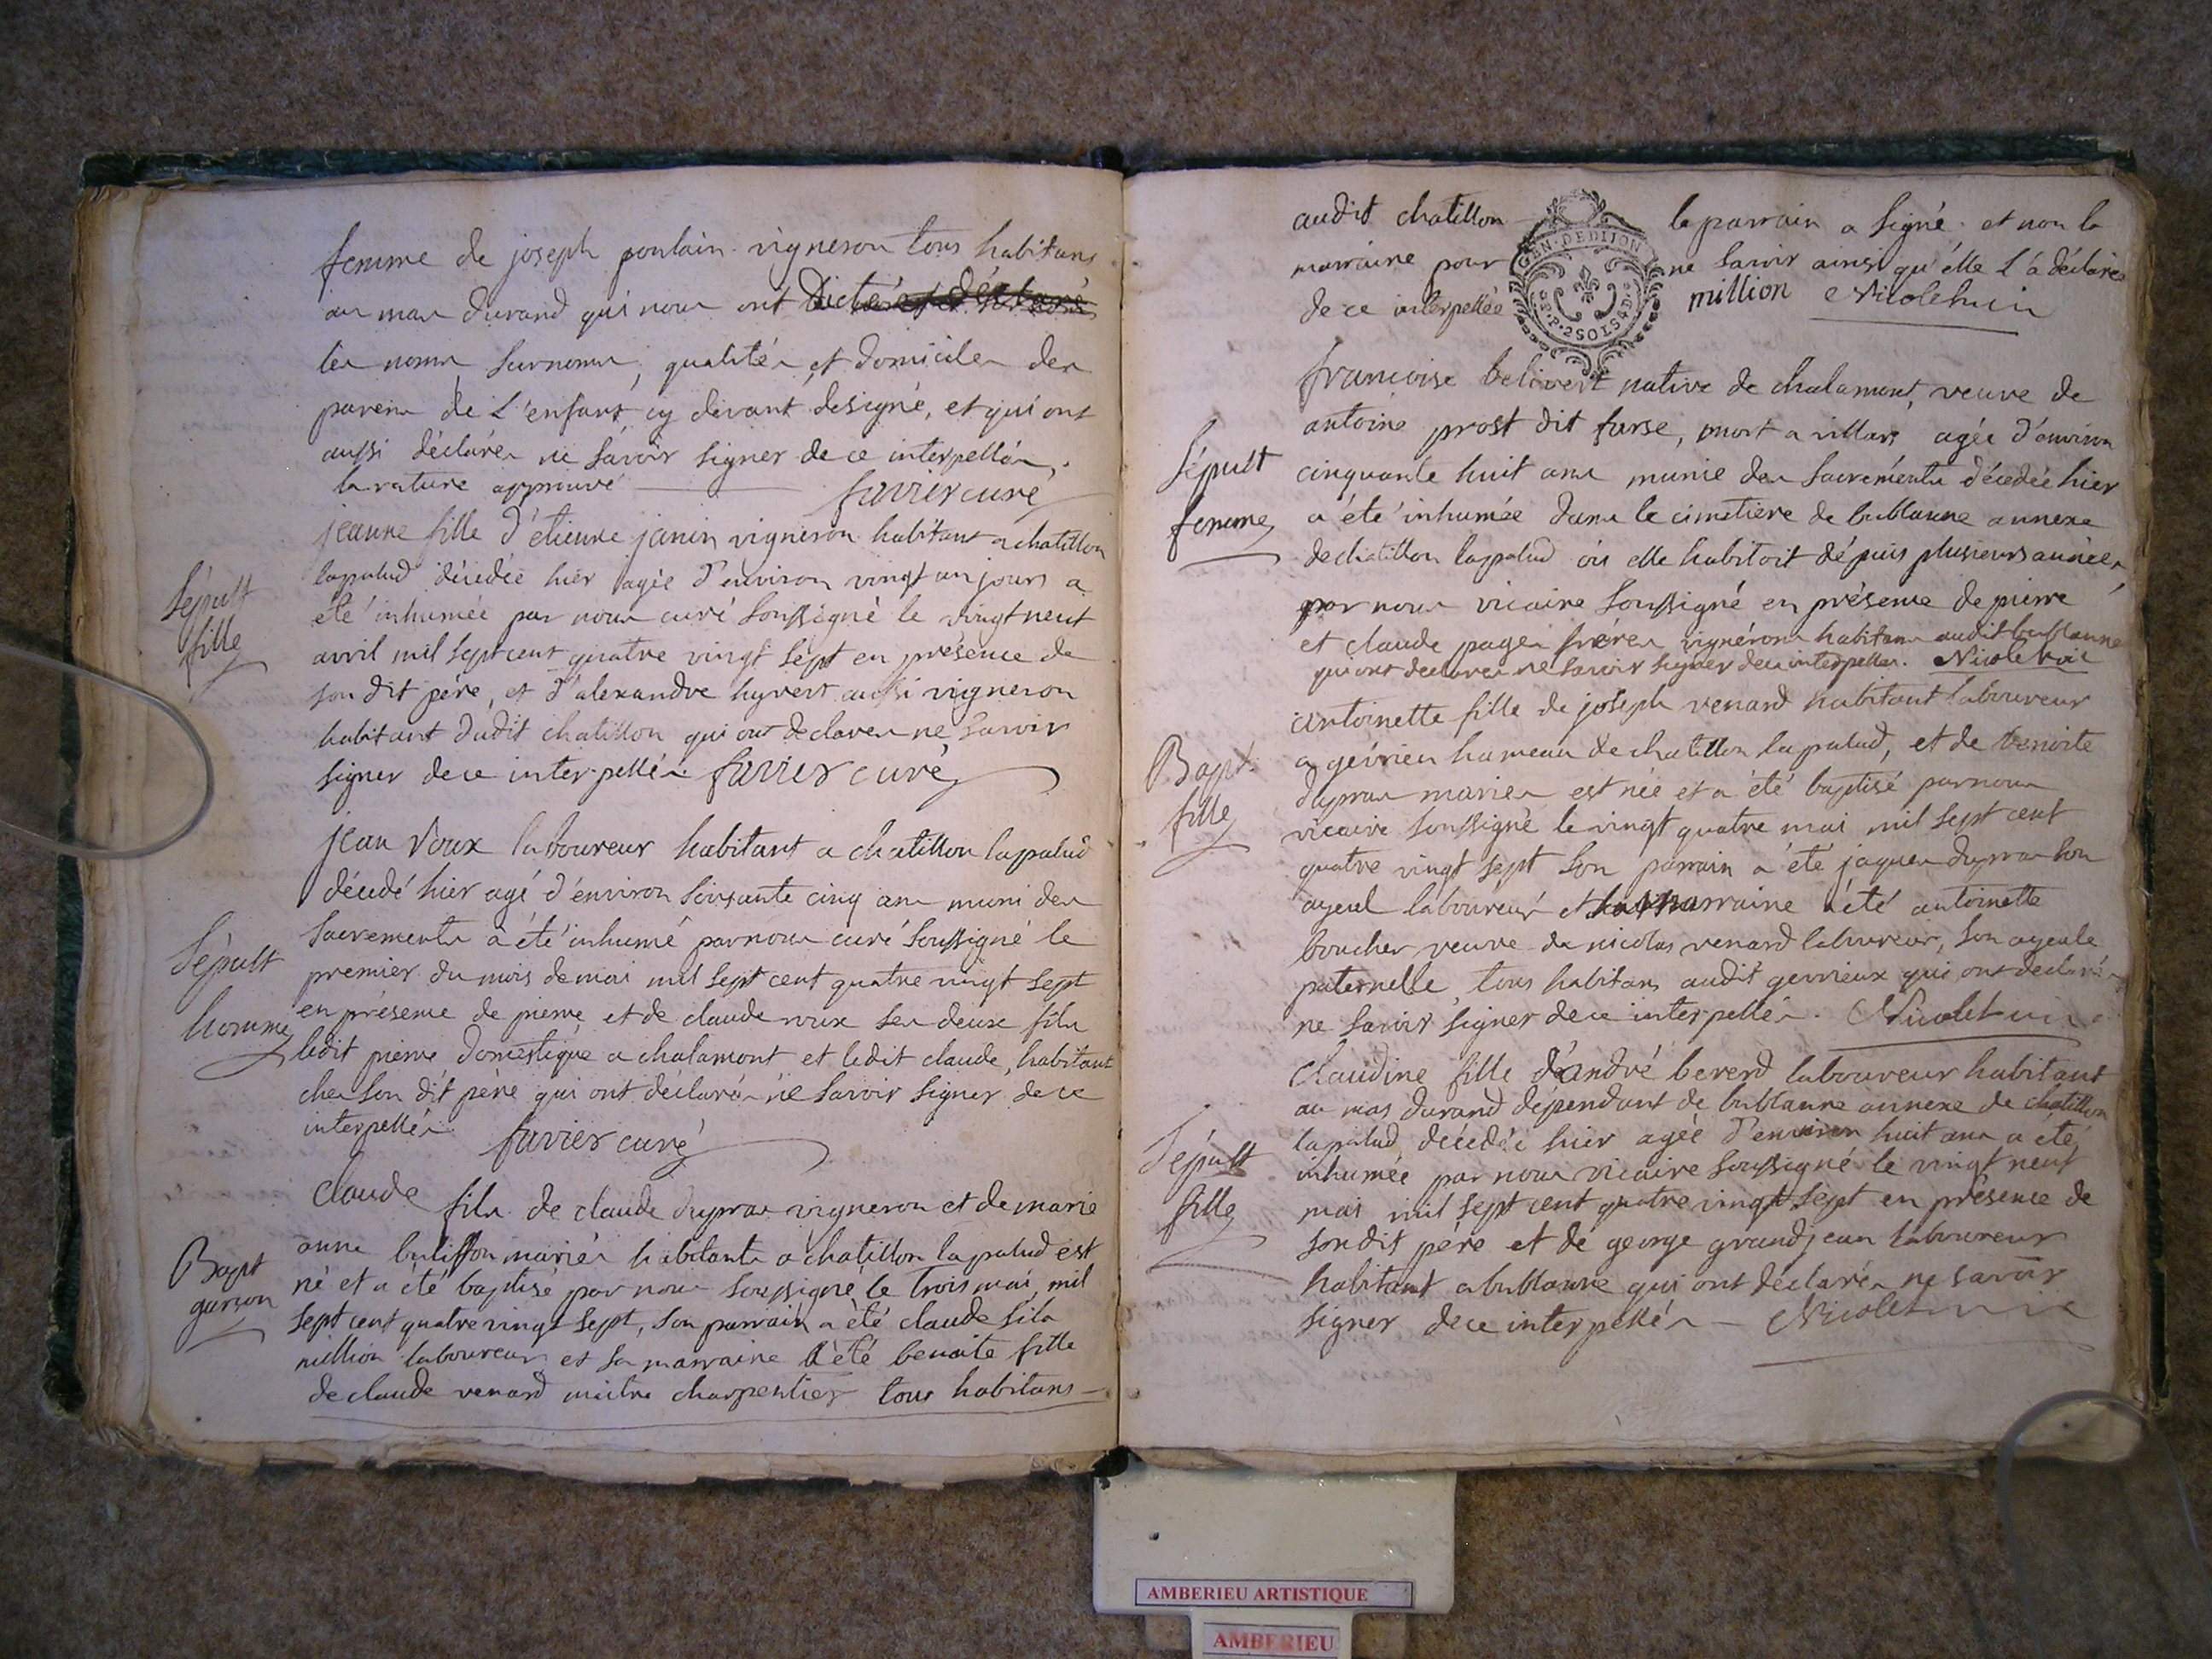 femme de joseph poulain vigneron tous habitans
au mas durand qui nous ont dicté et déclaré
les noms surnoms, qualités et domiciles des
parens de L'enfant cy devant designé, et qui ont
aussi déclarés ne savoir signer de ce interpellés.
la rature approuvé favier curé
Sépult
fille
jeanne fille d'étienne janin vigneron habitant a chatillon
lapalud décédée hier agée d'environ vingt un jours a
été inhumée par nous curé soussigné le vingt neuf
avril mil sept cent quatre vingt sept en présence de
son dit père, et d'alexandre hyvert aussi vigneron
habitant dudit chatillon qui ont declares ne savoir
signer de ce interpellés favier curé
Sépult
homme
jean Roux laboureur habitant a chatillon lapalud
décédé hier agé d'environ soixante cinq ans muni des
sacrements a été inhumé par nous curé soussigné le
premier du mois de mai mil sept cent quatre vingt sept
en présence de pierre et de claude roux ses deux fils
ledit pierre domestique a chalamont et ledit claude, habitant
ches son dit père qui ont déclarés ne savoir signer de ce
interpellés favier curé
Bapt
garson
claude fils de claude dupras vigneron et de marie
anne buliffon mariés habitants a chatillon lapalud est
né et a été baptisé par nous soussigné le trois mai mil
sept cent quatre vingt sept, son parrain a été claude fils
million laboureur et sa marraine a été benoite fille
de claude renard maitre charpentier tous habitans
audit chatillon le parrain a signé et non la
marraine pour ne savoir ainsi qu'elle L'a déclaré
de ce interpellée million Nicolet vic
GEN. DE DIJON
P. P. 2 SOLS 4 D.
Sépult
femme
francoise belivert native de chalamont, veuve de
antoine prost dit farse, mort a villars agée d'environ
cinquante huit ans munie des sacréments décédée hier
a été inhumée dans le cimetière de bublanne annexe
de chatillon lapalud où elle habitoit dépuis plusieurs années
par nous vicaire soussigné en présence de pierre
et claude pages frères vignérons habitans audit bublanne
qui ont declares ne savoir signer de ce interpellés. Nicolet vic
Bapt
fille
antoinette fille de joseph renard habitant laboureur
a gévrieu hameau de chatillon lapalud, et de benoite
dupras mariés est née et a été baptisé par nous
vicaire soussigné le vingt quatre mai mil sept cent
quatre vingt sept son parrain a été jaques dupras son
ayeul laboureur et sa marraine a été antoinette
boucher veuve de nicolas renard laboureur, son ayeule
paternelle tous habitans audit gevrieux qui ont declarés
ne savoir signer de ce interpellés. Nicolet vic
Sépult
fille
claudine fille d'andré bererd laboureur habitant
au mas durand dependant de bublanne annexe de chatillon
lapalud décédée hier agée d'environ huit ans a été
inhumée par nous vicaire soussigné le vingt neuf
mai mil sept cent quatre vingt sept en présence de
son dit père et de george grandjean laboureur
habitant a bublanne qui ont déclarés ne savoir
signer de ce interpellés Nicolet vic
AMBERIEU ARTISTIQUE
AMBERIEU